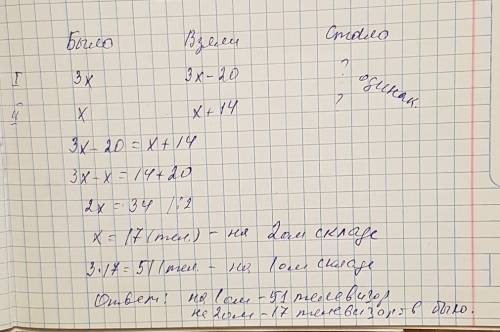 Было Взяли Стало
I 3х 3х-20 ?
одинак.
II х х+14 ?
3х-20=х+14
3х-х=14+20
2х=34 |:2
х=17(тел.)- на 2ом складе
3·17=51(тел.- на 1ом складе
Ответ: на 1ом-51 телевизор
на 2ом-17 телевизоров было.